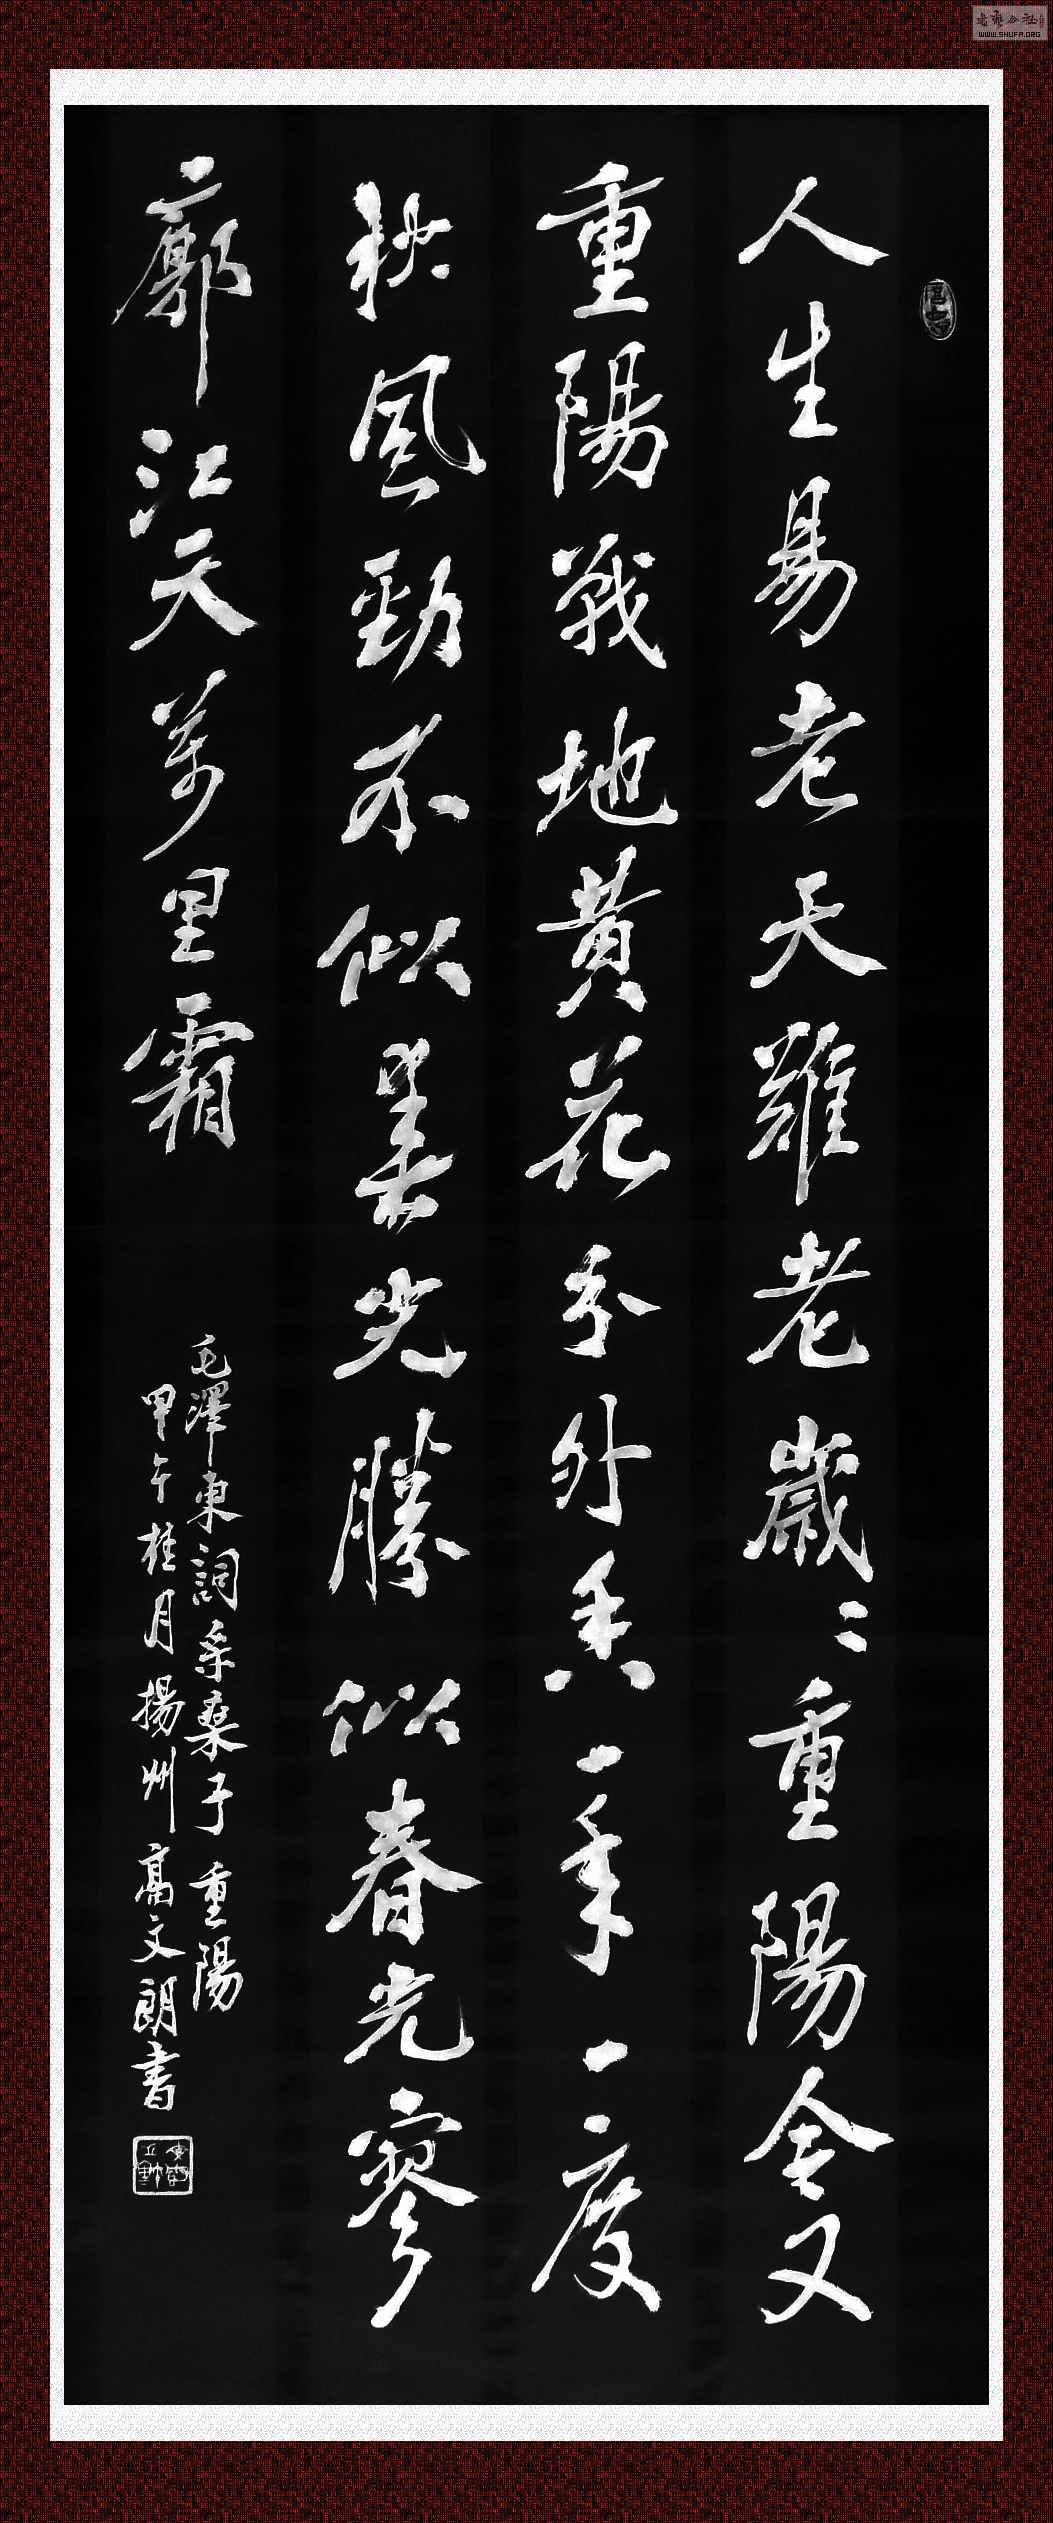 人生易老天難老歲〻重陽今又
重陽戰地黃花分外香一年一度
秋風勁不似春光勝似春光寥
廓江天萬里霜
毛澤東詞采桑子 重陽
甲午桂月揚州高文朗書
WWW.SHUFA.ORG